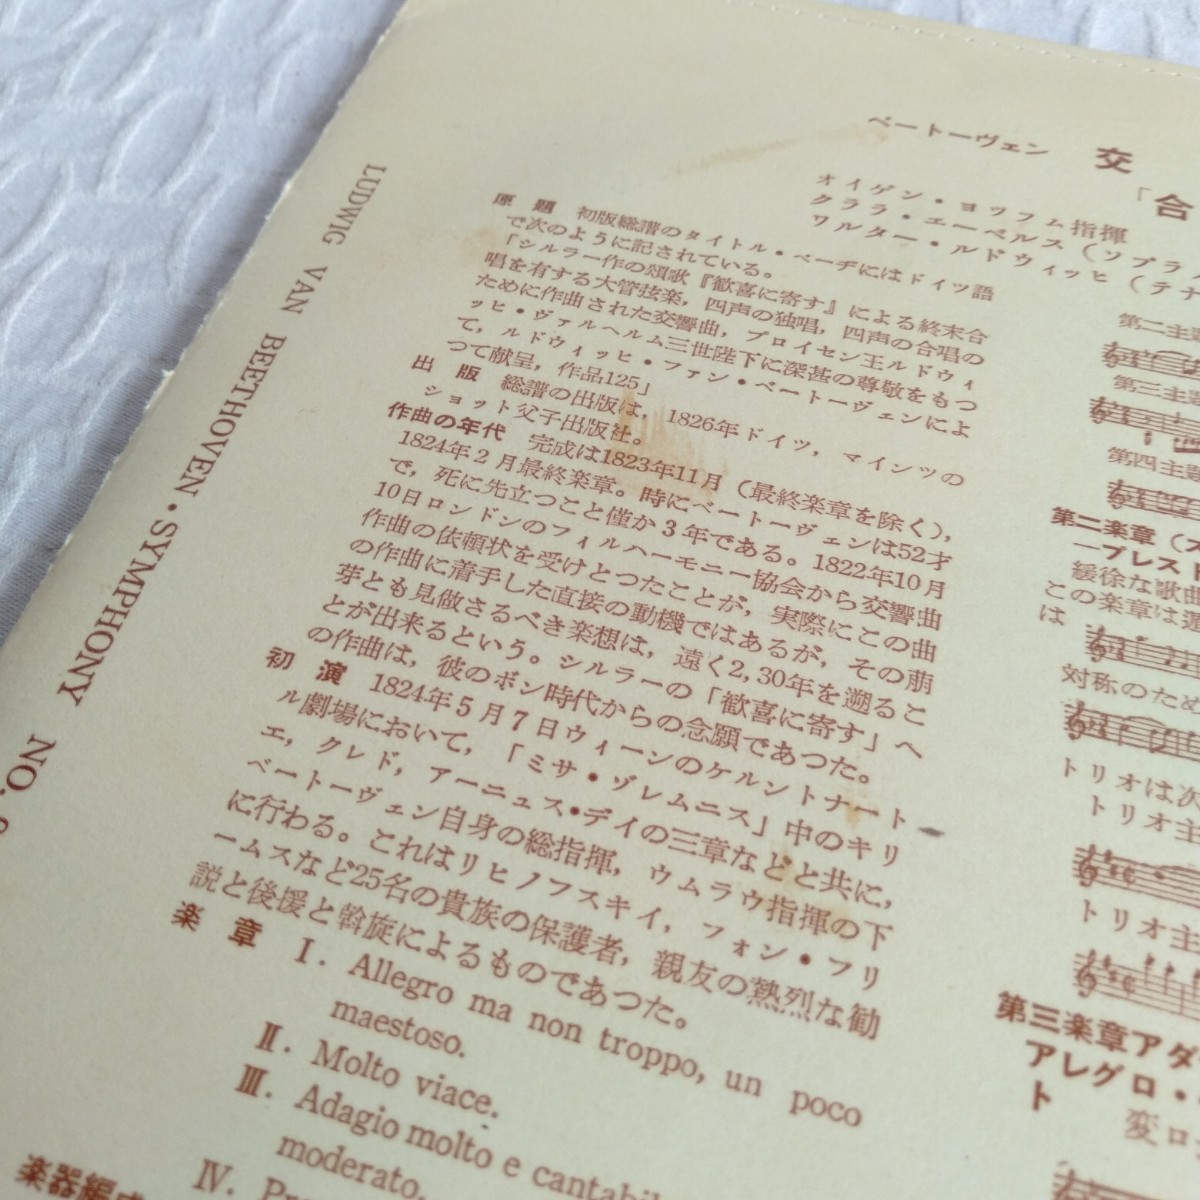 LUDWIG VAN BEETHOVEN・SYMPHONY NO.
ベートーヴェン 交
「合
オイゲン・ヨッフム指揮
クララ・エーベルス（ソプラ
ワルター・ルドウィッヒ（テナ
原題 初版総譜のタイトル・ページにはドイツ語
で次のように記されている。
「シルラー作の頌歌『歓喜に寄す』による終末合
唱を有する大管弦楽，四声の独唱，四声の合唱の
ために作曲された交響曲，プロイセン王ルドウィ
ッヒ・ヴァルヘルム三世陛下に深甚の尊敬をもつ
て，ルドウィッヒ・ファン・ベートーヴェンによ
つて献呈，作品125」
出版 総譜の出版は，1826年ドイツ，マインツの
ショット父子出版社。
作曲の年代 完成は1823年11月（最終楽章を除く），
1824年2月最終楽章。時にベートーヴェンは52才
で，死に先立つこと僅か3年である。1822年10月
10日ロンドンのフィルハーモニー協会から交響曲
作曲の依頼状を受けとつたことが，実際にこの曲
の作曲に着手した直接の動機ではあるが，その萠
芽とも見做さるべき楽想は，遠く2,30年を遡るこ
とが出来るという。シルラーの「歓喜に寄す」へ
の作曲は，彼のボン時代からの念願であつた。
初演 1824年5月7日ウィーンのケルントナート
ル劇場において，「ミサ・ゾレムニス」中のキリ
エ，クレド，アーニュス・デイの三章などと共に，
ベートーヴェン自身の総指揮，ウムラウ指揮の下
に行わる。これはリヒノフスキイ，フォン・フリ
ームスなど25名の貴族の保護者，親友の熱烈な勧
説と後援と斡旋によるものであつた。
楽章 Ⅰ. Allegro ma non troppo, un poco
maestoso.
Ⅱ. Molto viace.
Ⅲ. Adagio molto e cantabil
moderato.
Ⅳ. Pr
楽器編成
第二主
第三主
第四主題
第二楽章（
―プレスト
緩徐な歌曲
この楽章は
は
対称のため
トリオは次
トリオ主
トリオ主
第三楽章アダ
アレグロ・
ト
変ロ